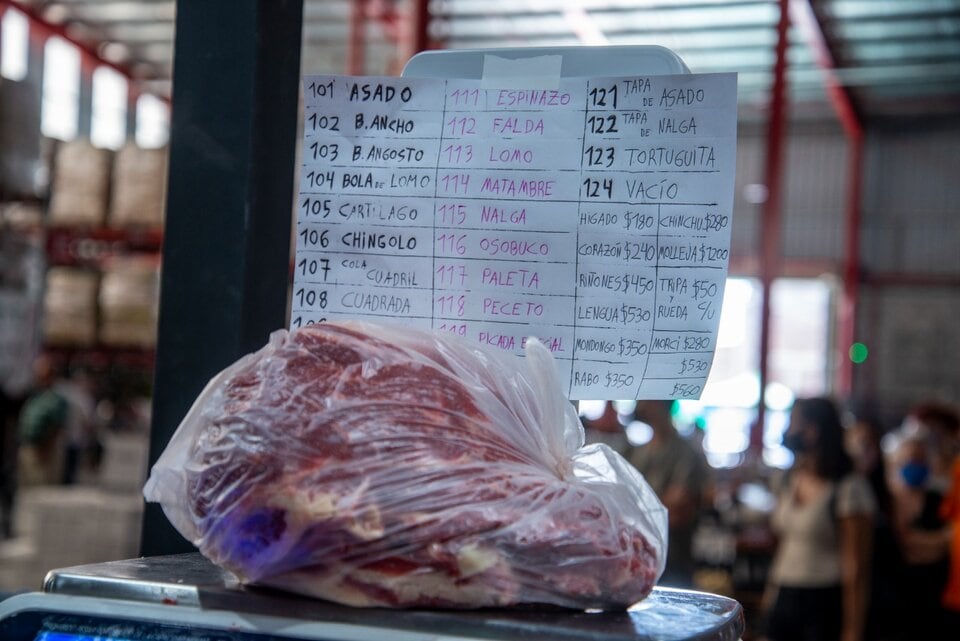 101 ASADO
102 B. ANCHO
103 B. ANGOSTO
104 BOLA DE LOMO
105 CARTILAGO
106 CHINGOLO
107 COLA CUADRIL
108 CUADRADA
111 ESPINAZO
112 FALDA
113 LOMO
114 MATAMBRE
115 NALGA
116 OSOBUCO
117 PALETA
118 PECETO
119 PICADA
121 TAPA DE ASADO
122 TAPA DE NALGA
123 TORTUGUITA
124 VACÍO
HIGADO $180
CORAZÓN $240
RIÑONES $450
LENGUA $530
MONDONGO $350
RABO $350
CHINCHU $280
MOLLEJA $1200
TRIPA $50
Y
RUEDA C/U
MORCI $280
$530
$560